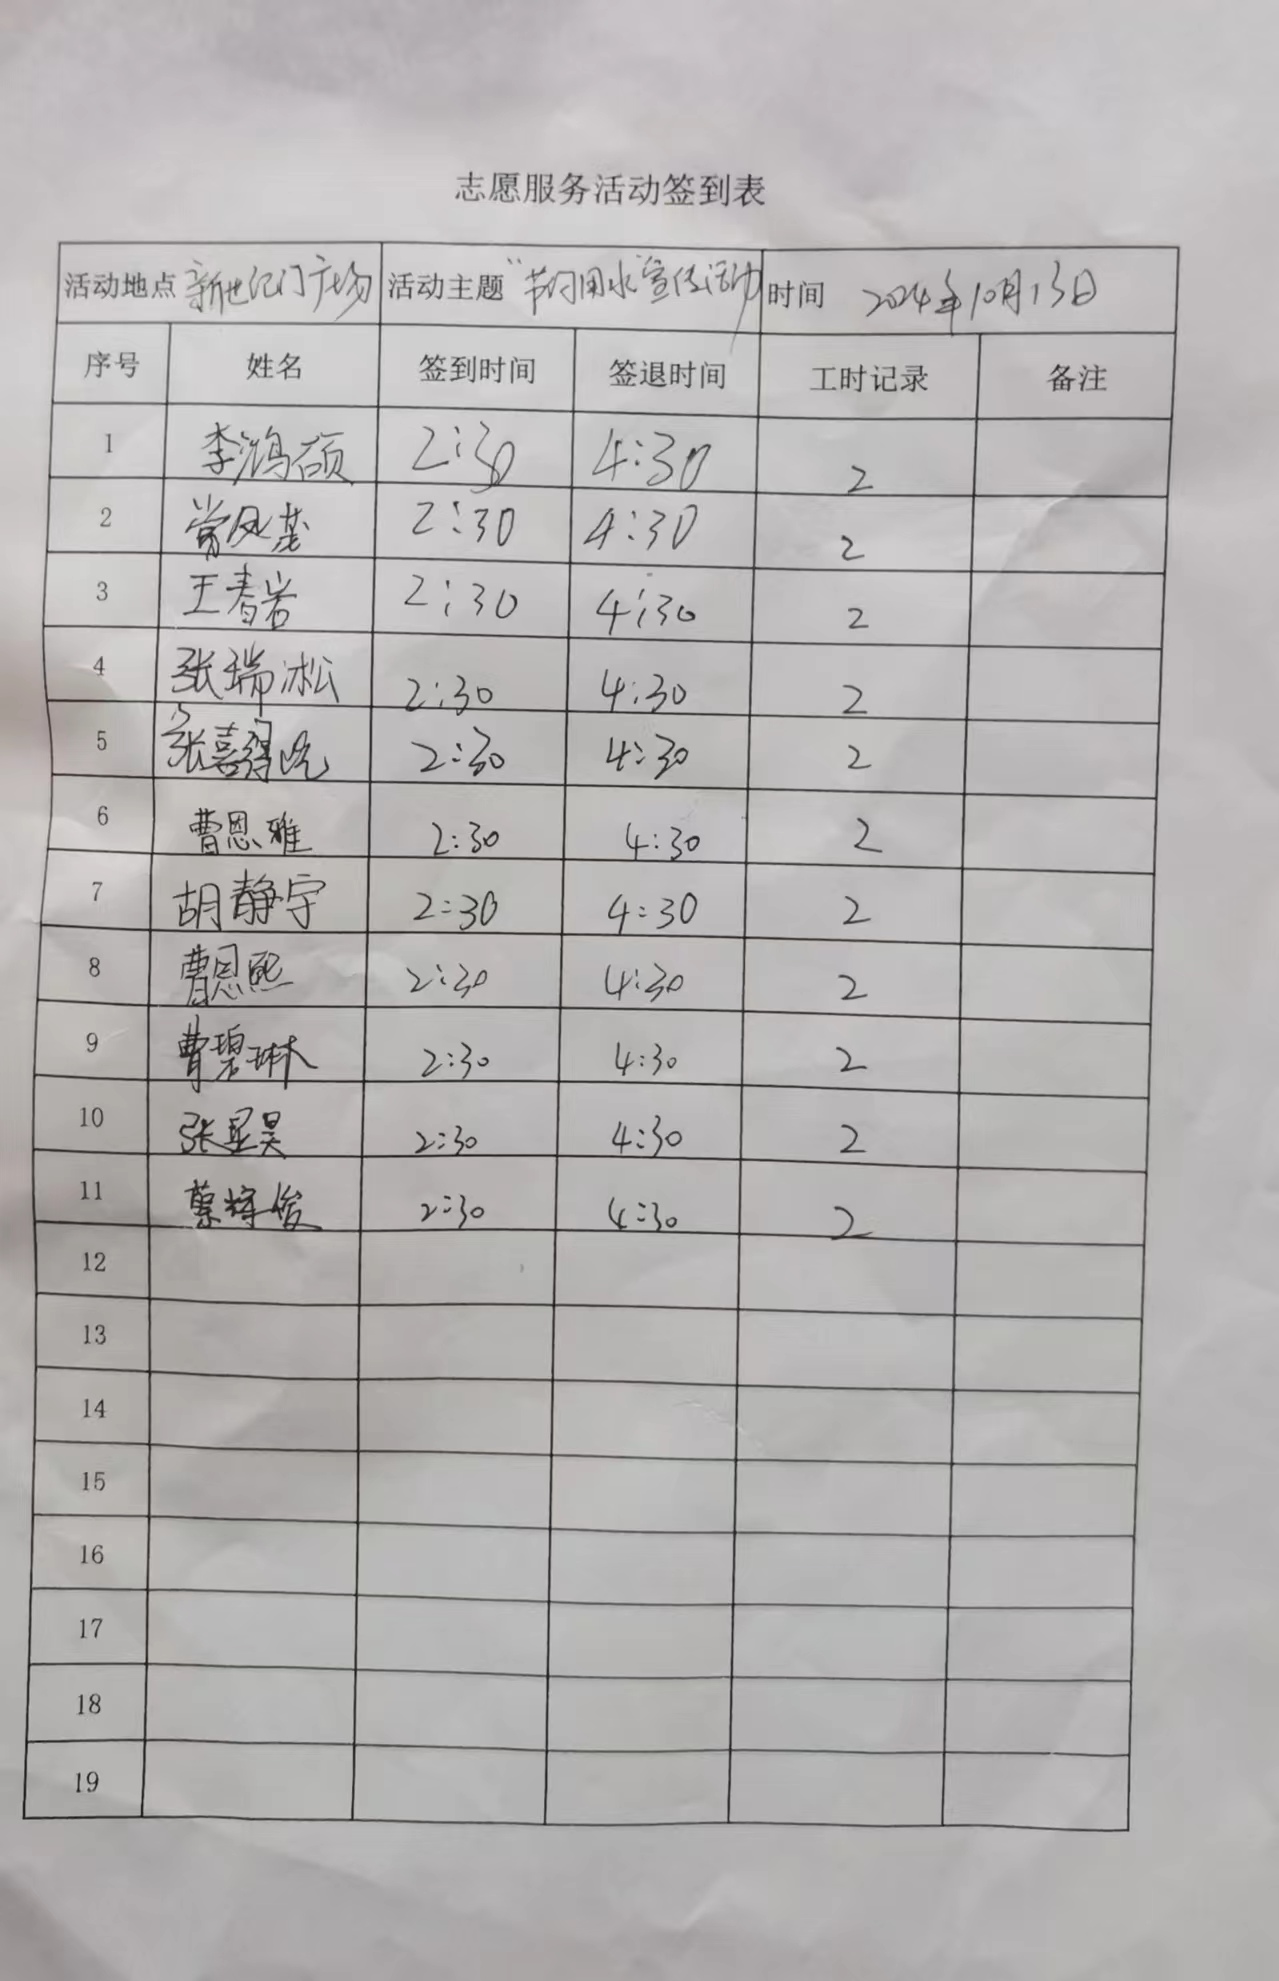 志愿服务活动签到表
活动地点 新世纪门广场 活动主题 "节约用水"宣传活动 时间 2024年10月13日
序号 姓名 签到时间 签退时间 工时记录 备注
1 李鸿硕 2:30 4:30 2
2 常凤茂 2:30 4:30 2
3 王春岩 2:30 4:30 2
4 张瑞淞 2:30 4:30 2
5 张喜 2:30 4:30 2
6 曹恩雅 2:30 4:30 2
7 胡静宇 2:30 4:30 2
8 曹恩熙 2:30 4:30 2
9 曹碧琳 2:30 4:30 2
10 张星昊 2:30 4:30 2
11 蔡辉俊 2:30 4:30 2
12
13
14
15
16
17
18
19